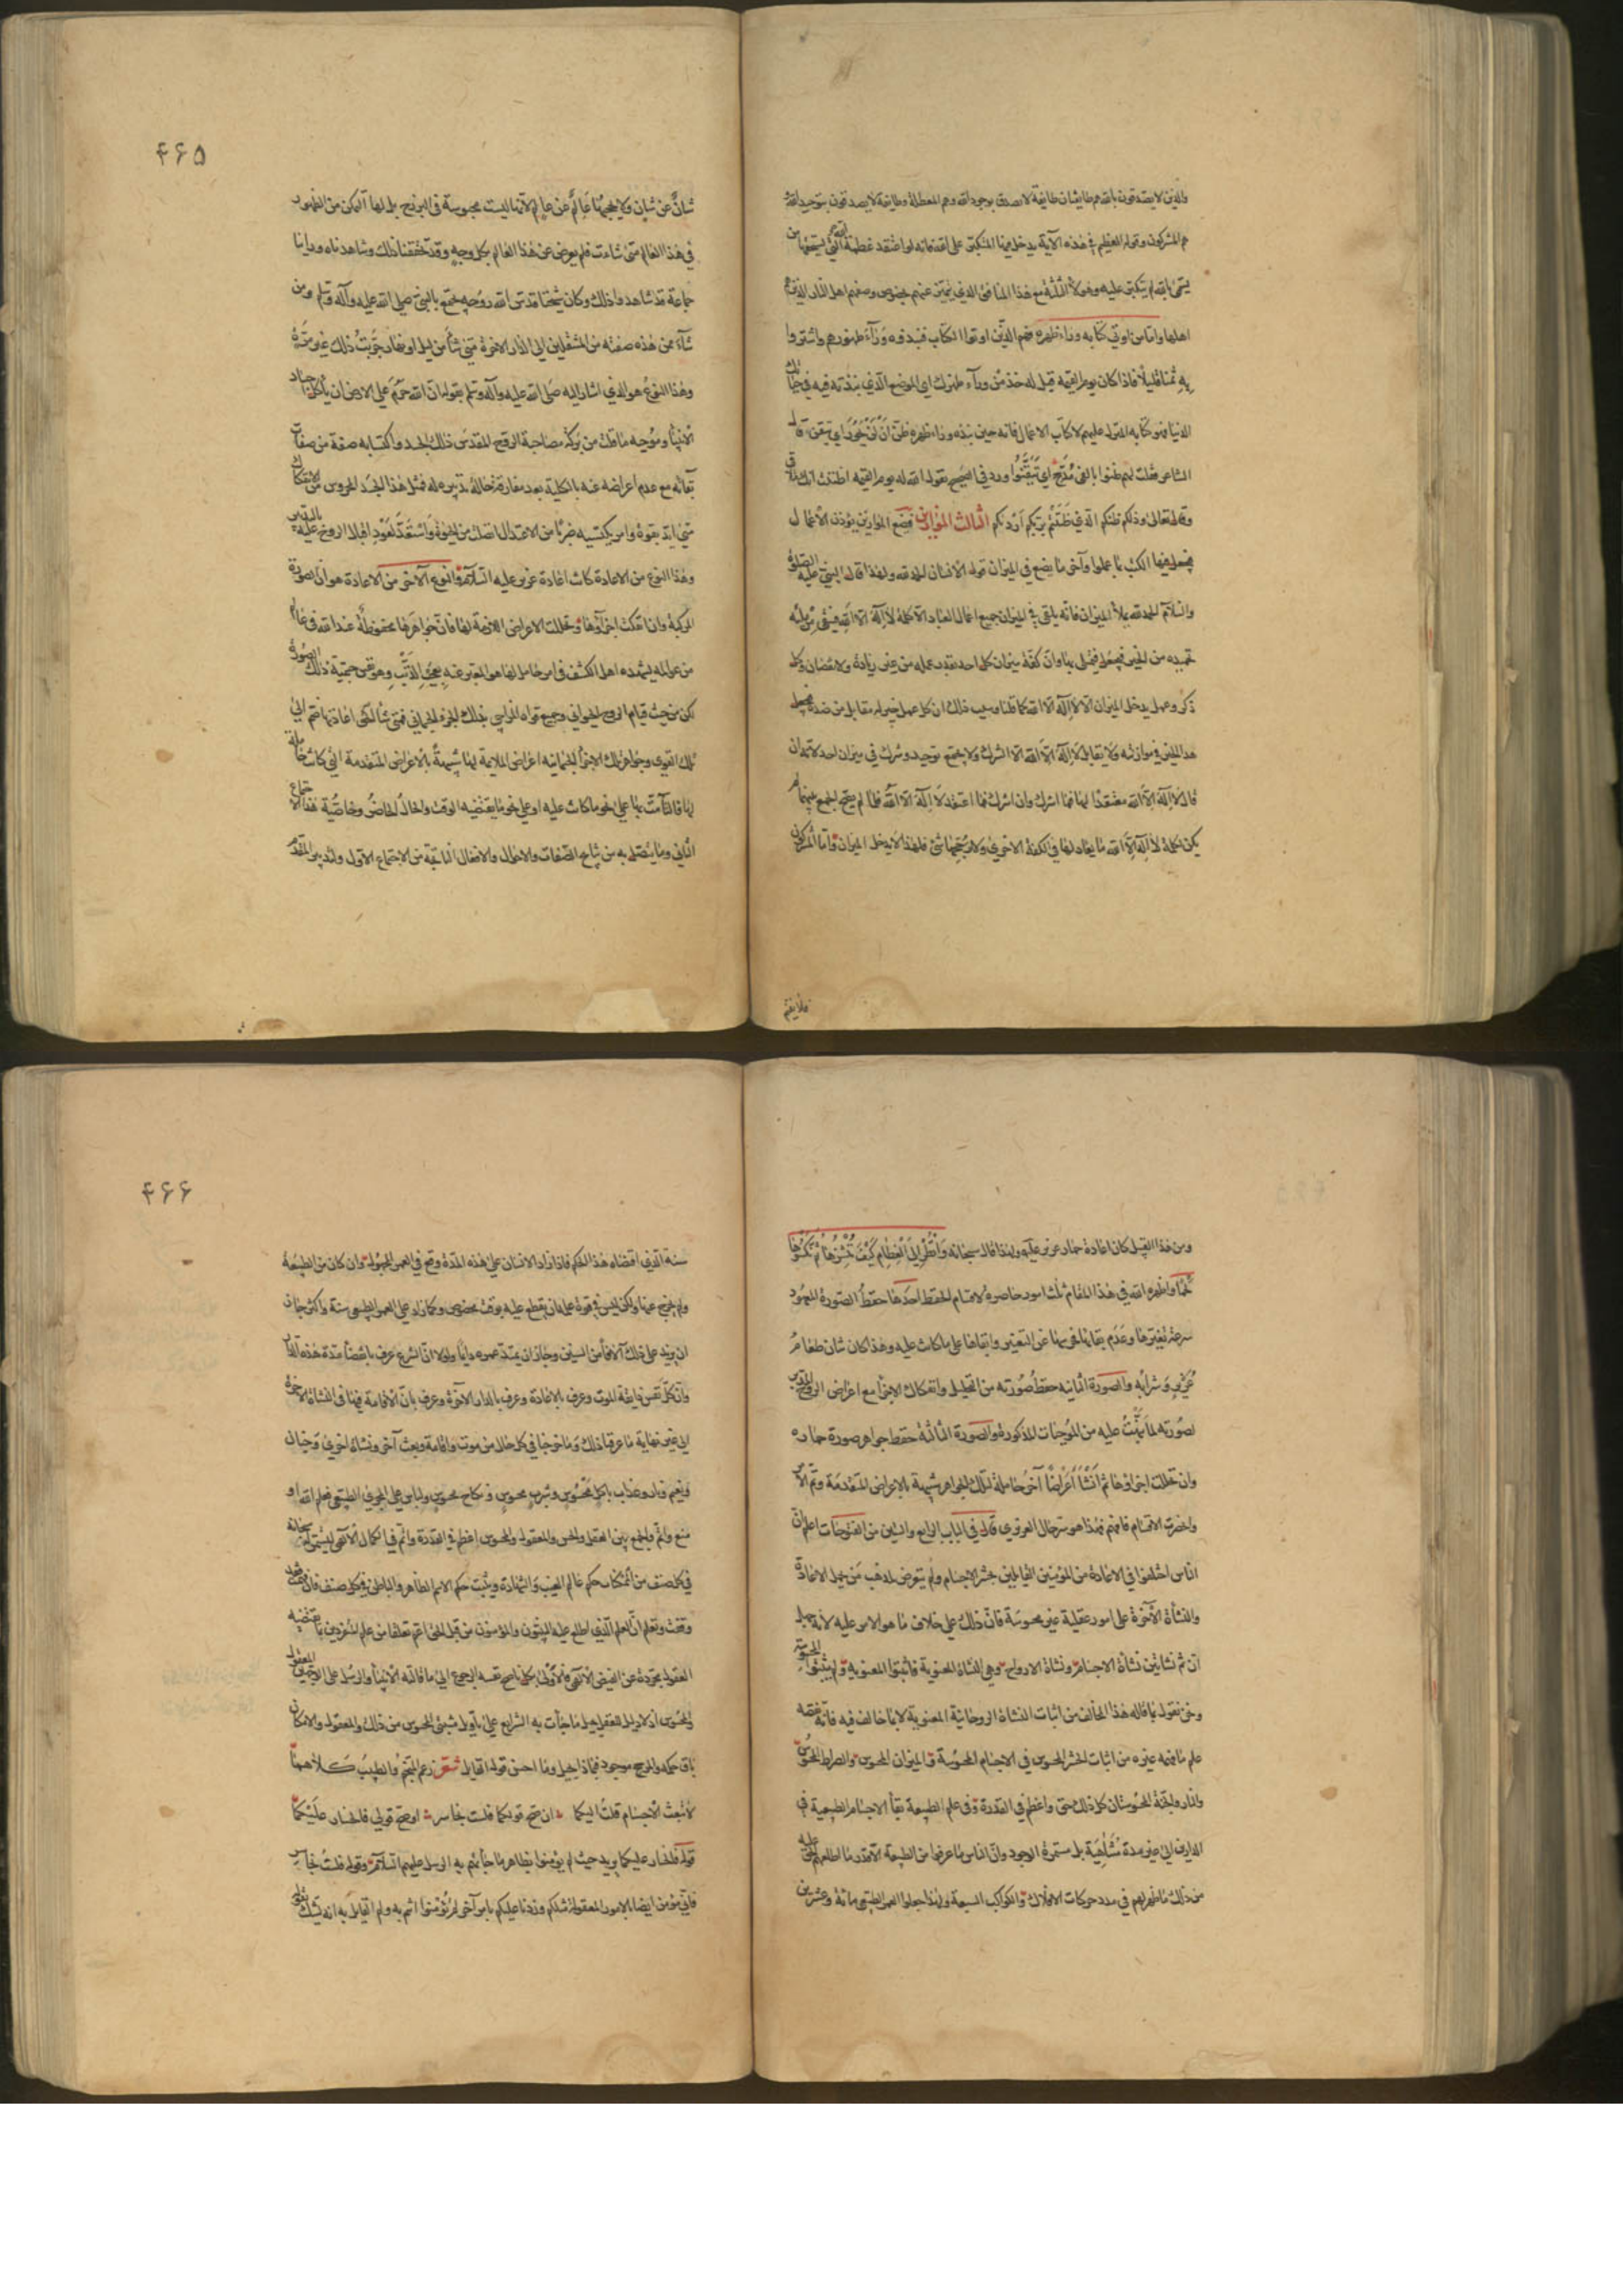 والذين لا يصدقون بالله هم طايفتان طايفة لا يصدق بوجود الله وهم المعطلة وطايفة لا يصدقون بتوحيد الله
هم المشركون وقوله العظيم في هذه الآية يدخل فيها المتكبر على الله فانه لو اعتقد عظمة الله التي يستحقها من
يسمى بالله لم يتكبر عليه وهولاء الثلثة مع هذا المنافق الذي تميز عنهم بخصوص وصفهم اهل النار الذين هم
اهلها واما من اوتي كتابه وراء ظهره فهم الذين اوتوا الكتاب فنبذوه وراء ظهورهم واشتروا
به ثمنا قليلا فاذا كان يوم القيمة قيل له خذه من وراء ظهرك اي الموضع الذي نبذته فيه في حياتك
الدنيا فهو كتابه المنزل عليهم لا كتاب الاعمال فانه حين نبذه وراء ظهره ظن ان لن يحور اي تيقن قال
الشاعر فقلت لهم ظنوا بالفي مدجج اي تيقنوا ورد في الصحيح يقول الله له يوم القيمة اظننت انك ملاقي
وقال تعالى وذلكم ظنكم الذي ظننتم بربكم ارديكم الثالث الموازين فتضع الموازين لوزن الاعمال
فيجعل فيها الكتب بما عملوا وآخر ما يضع في الميزان قول الانسان الحمد لله ولهذا قال النبي عليه الصلوة
والسلام الحمد لله يملأ الميزان فانه يلقى في الميزان جميع اعمال العباد الا كلمة لا اله الا الله فيبقى من مليه
تحميده من الخير فيجعل فيمتلي بها وان كفة ميزان كل احد بقدر عمله من غير زيادة ولا نقصان وكل
ذكر وعمل يدخل الميزان الا لا اله الا الله كما قلنا وسبب ذلك ان كل عمل خير له مقابل من ضده فيجعل
هذا الخير في موازنته ولا يقابل لا اله الا الله الا الشرك ولا يجتمع توحيد وشرك في ميزان احد لانه ان
قال لا اله الا الله معتقدا لها فما اشرك وان اشرك فما اعتقد لا اله الا الله فلما لم يصح الجمع بينهما لم
يكن لكلمة لا اله الا الله ما يعادلها في الكفة الاخرى ولا يرجحها شئ فلهذا لا يدخل الميزان واما المشركون
فلا يقيم
۴۶۵
شان عن شان ولا يحجبها عالم عن عالم لانها ليست محبوسة في البرزخ بل لها التمكن من الظهور
في هذا العالم متى شاءت فلم يعرض عن هذا العالم بكل وجه وقد تحققنا ذلك وشاهدناه وراينا
جماعة قد شاهدوا ذلك وكان شيخنا قدس الله روحه يجتمع بالنبي صلى الله عليه وآله وسلم ومن
شاء ممن هذه صفته من المنتقلين الى الدار الاخرة متى شاء من ليل او نهار جربت ذلك غير مرة
وهذا النوع هو الذي اشار اليه صلى الله عليه وآله وسلم بقوله ان الله حرم على الارض ان ياكل اجساد
الانبياء وموجبه ما قلت من بركة مصاحبة الروح المقدس ذلك الجسد واكتسابه صفة من صفات
بقائه مع عدم اعراضه عنه بالكلية بعد مفارقته حالة تدبيره له فمثل هذا الجسد المحروس من الانفكاك
متى ايد بقوة وامر يكتسبه ضربا من الاعتدال اتصلت من الحيوة واستعد لعود اقبال الروح عليه بالتدبير
وهذا النوع من الاعادة كانت اعادة عزير عليه السلام والنوع الآخر من الاعادة هو ان الصورة
المركبة وان انفكت اجزآؤها وتحللت الاعراض اللازمة لها فان جواهرها محفوظة عند الله في عالم
من عوالمه يشهده اهل الكشف في امر حامل لها هو المعبر عنه بعجب الذنب وهو نفس جمعية ذلك الصورة
لكن من حيث قيام الروح الحيواني وجميع قواه المزاجي بذلك الجزء الجسماني فمتى شاء الحق اعادتها ضم الى
تلك القوى وجواهر تلك الاجزاء الجسمانيه اعراض الملايمة لها شبيهة بالاعراض المتقدمة التي كانت حاملة
لها فالتأمت بها على نحو ما كانت عليه او على نحو ما يقتضيه الوقت والحال الحاضر وخاصية هذا الاجتماع
الثاني وما يتصل به من نتايج الصفات والاحوال والافعال الناتجة من الاجتماع الاول والتدبير المتقدم
ومن هذا القبيل كان اعادة حمار عزير عليه ولهذا قال سبحانه وانظر الى العظام كيف ننشزها ثم نكسوها
لحما واظهر الله في هذا المقام ثلث امور حاصرة لاقسام الحفظ احدها حفظ الصورة المعهود
سرعة تغيرها وعدم بقائها فحرسها عن التغير وابقاها على ما كانت عليه وهذا كان شان طعام
عزير وشرابه والصورة الثانيه حفظ صورته من التحليل وانفكاك الاجزاء مع اعراض الروح المدبر
لصورته لما نبهت عليه من الموجبات المذكورة والصورة الثالثة حفظ جواهر صورة حماره
وان تحللت اجزاؤها ثم انشأ اعراضا آخر حاملة لتلك الجواهر شبيهة بالاعراض المتقدمة وتم الامر
وانحصرت الاقسام فافهم فهذا هو سر حال العزيزي قال في الباب الرابع والستين من الفتوحات اعلم ان
الناس اختلفوا في الاعادة من المؤمنين القايلين بحشر الاجسام ولم يتعرض لمذهب من يحمل الاعادة
والنشأة الآخرة على امور عقلية غير محسوسة فان ذلك على خلاف ما هو الامر عليه لانه جهل
ان ثم نشاتين نشاة الاجسام ونشاة الارواح وهي النشاة المعنوية فأثبتوا المعنوية ولم يثبتوا الحسية
ونحن نقول بما قاله هذا المخالف من اثبات النشاة الروحانية المعنوية لا بما خالف فيه فانه نقصه
علم ما فهمه غيره من اثبات الحشر المحسوس في الاجسام المحسوسة والميزان المحسوس والصراط المحسوس
والنار والجنة المحسوستان كل ذلك حق واعظم في القدرة وفي علم الطبيعة بقاء الاجسام الطبيعية في
الدارين الى غير مدة متناهية بل مستمرة الوجود وان الناس ما عرفوا من الطبيعة الا قدر ما اطلعهم الحق عليه
من ذلك مما ظهر لهم في مدد حركات الافلاك والكواكب السبعة ولهذا جعلوا العمر الطبيعي مائة وعشرين
۴۶۶
سنة الذي اقتضاه هذا الحكم فاذا زاد الانسان على هذه المدة وقع في العمر المجهول وان كان من الطبيعة
ولم يخرج عنها ولكن ليس في قوة علمه ان يقطع عليه بوقت مخصوص وكما زاد على العمر الطبيعي سنة واكثر جاز
ان يزيد على ذلك آلافا من السنين وجاز ان يمتد عمره دايما ولولا ان الشرع عرف بانقضاء مدة هذه الدار
وان كل نفس ذايقة الموت وعرف بالاعادة وعرف بالدار الآخرة وعرف بان الاقامة فيها في النشاة الآخرة
الى غير نهاية ما عرفنا ذلك وما خرجنا في كل حال من موت واقامة وبعث آخر ونشاة اخرى وجنان
ونعيم ونار وعذاب باكل محسوس وشرب محسوس ونكاح محسوس ولباس على المجرى الطبيعي فعلم الله او
سع واتم والجمع بين العقل والحس والمعقول والمحسوس اعظم في القدرة واتم في الكمال الالهي ليستمر له سبحانه
في كل صنف من الممكنات حكم عالم الغيب والشهادة ويثبت حكم الاسم الظاهر والباطن في كل صنف فان فهمت فقد
وفقت وتعلم ان العلم الذي اطلع عليه النبيون والمؤمنون من قبل الحق اعم تعلقا من علم المنفردين بما يقتضيه
العقول مجردة عن الفيض الالهي فالاولى بكل ناصح نفسه الرجوع الى ما قالته الانبياء والرسل على الوجهين المعقول
والمحسوس اذ لا دليل للعقل يحيل ما جاءت به الشرايع على تاويل مثبتي المحسوس من ذلك والمعقول والامكان
باق حكمه والمرجح موجود فبماذا يحيل وما احسن قول القايل شعر زعم المنجم والطبيب كلاهما
لا تبعث الاجسام قلت اليكما ان صح قولكما فلست بخاسر او صح قولي فالخسار عليكما
قوله فالخسار عليكما يريد حيث لم يؤمنوا بظاهر ما جاءتهم به الرسل عليهم السلام وقوله فلست بخاسر
فاني مؤمن ايضا بالامور المعقولة مثلكم وزدنا عليكم بامر آخر لم تؤمنوا انتم به ولم القايل به انه يشك تعالى